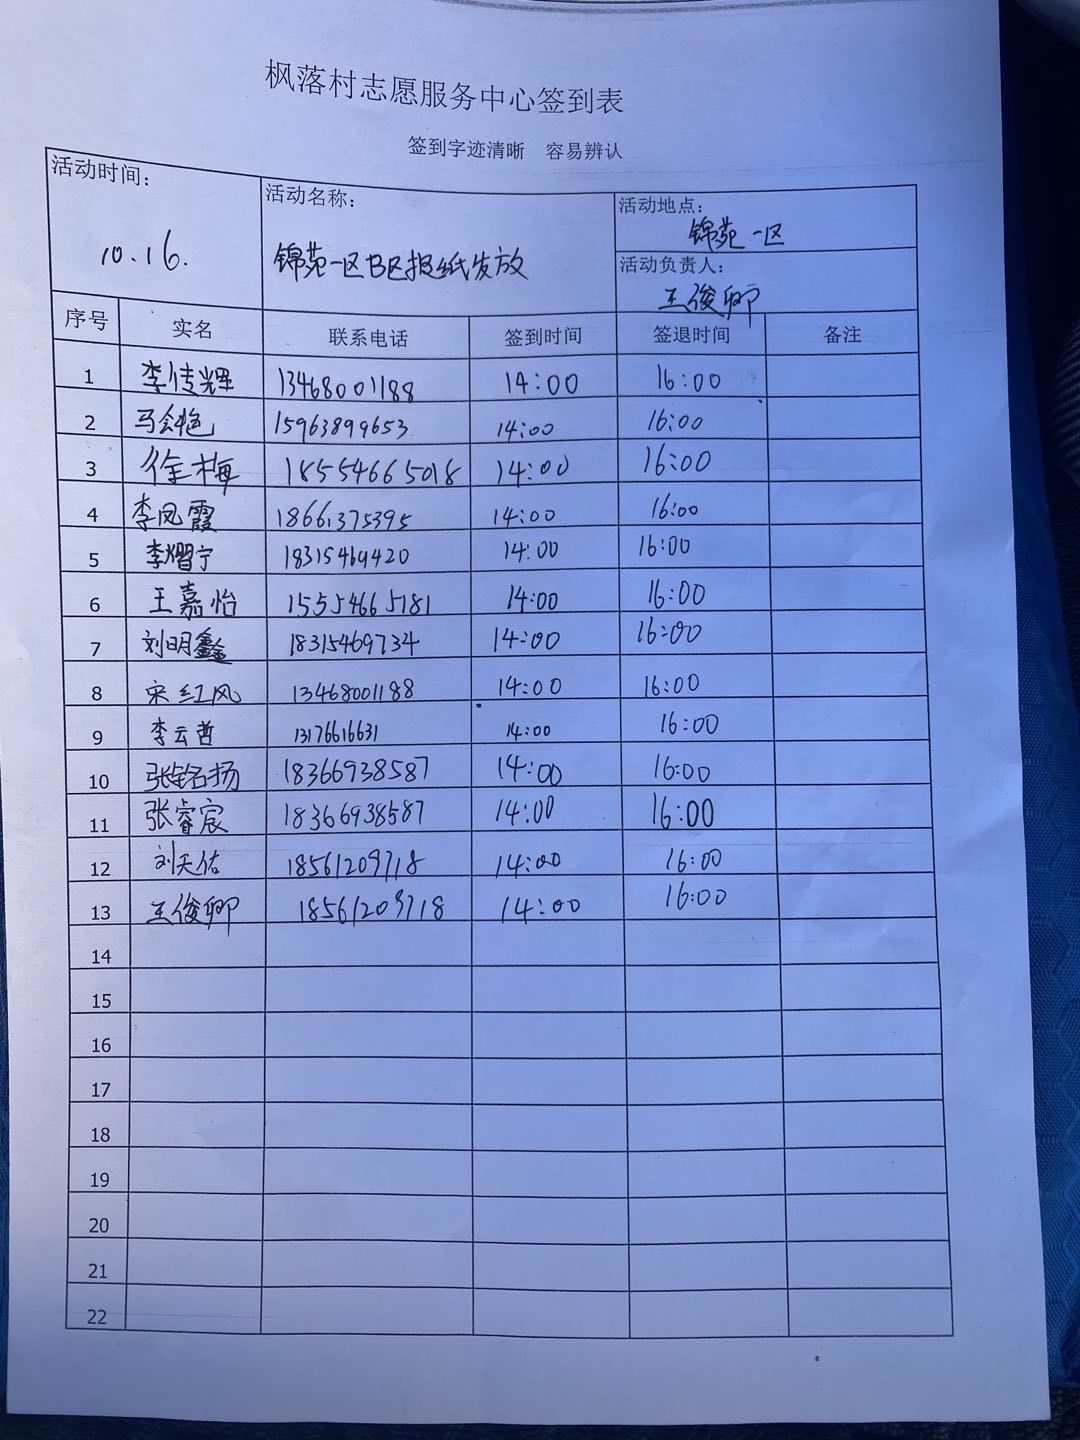 枫落村志愿服务中心签到表
签到字迹清晰 容易辨认
活动时间： 活动名称： 活动地点：
10.16. 锦苑一区B区报纸发放 锦苑一区
活动负责人：
王俊卿
序号 实名 联系电话 签到时间 签退时间 备注
1 李传辉 13468001188 14:00 16:00
2 马会艳 15963899653 14:00 16:00
3 徐梅 18554665018 14:00 16:00
4 李凤霞 18661375395 14:00 16:00
5 李熠宁 18315469420 14:00 16:00
6 王嘉怡 15554665181 14:00 16:00
7 刘明鑫 18315469734 14:00 16:00
8 宋红风 13468001188 14:00 16:00
9 李云哲 13176616631 14:00 16:00
10 张铭扬 18366938587 14:00 16:00
11 张睿宸 18366938587 14:00 16:00
12 刘天佑 18561209718 14:00 16:00
13 王俊卿 18561209718 14:00 16:00
14
15
16
17
18
19
20
21
22